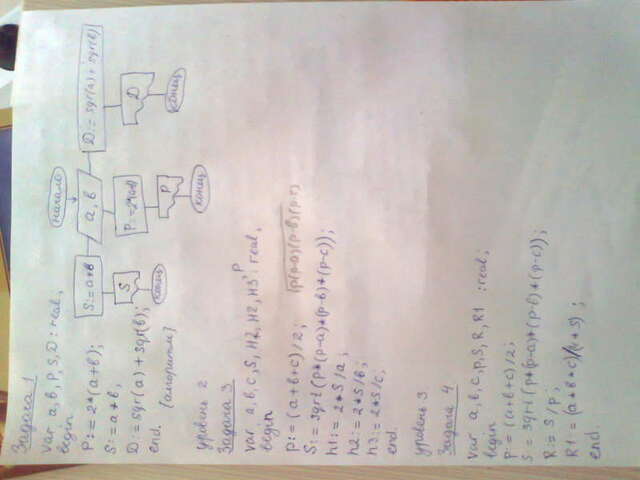 Задача 1
var a, b, P, S, D : real;
begin
P:= 2*(a+b);
S:= a*b;
D:= sqr(a) + sqr(b);
end. (алгоритм)
начало
a, b
S:= a*b
S
конец
P:=2*(a+b)
P
конец
D:= sqr(a) + sqr(b)
D
конец
уровень 2
Задача 3
var a, b, c, S, H2, H2, H3, P : real;
begin
p:= (a+b+c)/2; (p(p-a)(p-b)(p-c)
S:= sqrt(p*(p-a)*(p-b)*(p-c));
h1:= 2*S/a;
h2:= 2*S/b;
h3:= 2*S/c;
end.
уровень 3
Задача 4.
var a, b, c, p, S, R, R1 : real;
begin
p:= (a+b+c)/2;
S:= sqrt(p*(p-a)*(p-b)*(p-c));
R:= S/p;
R1:= (a*b*c)/(4*S);
end.